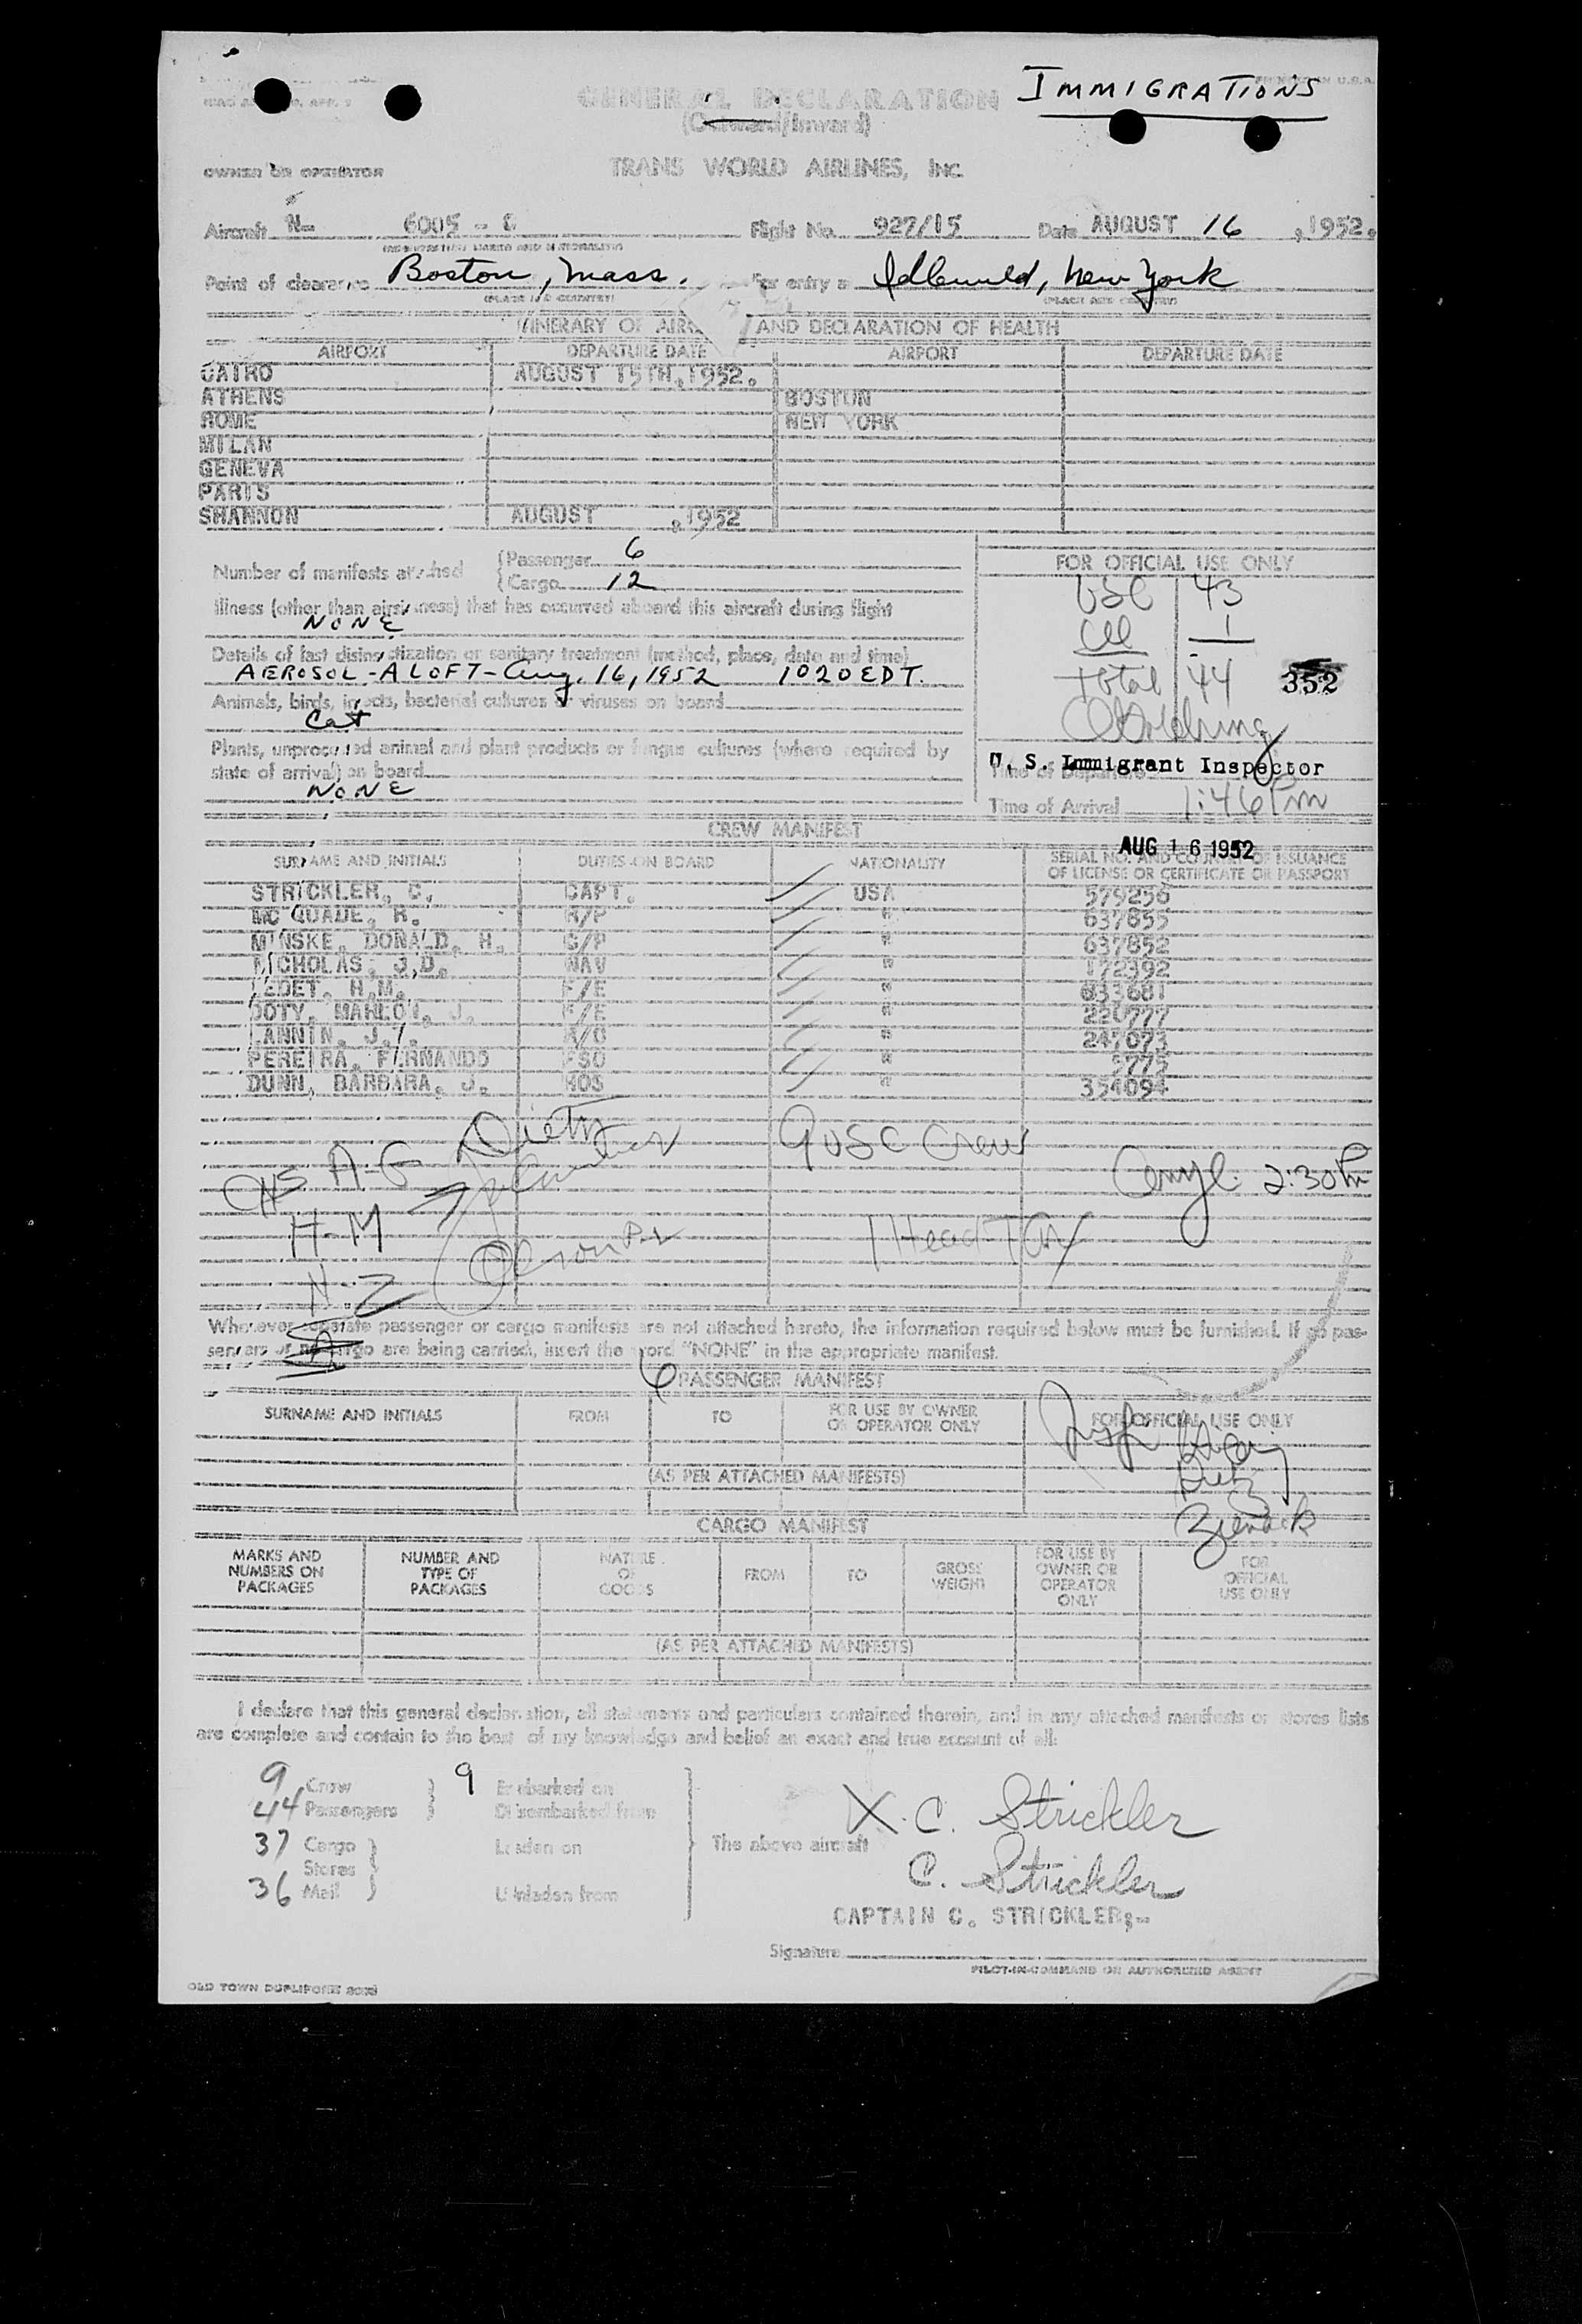 IMMIGRATIONS
GENERAL DECLARATION
(Outward/Inward)
OWNER OR OPERATOR TRANS WORLD AIRLINES, INC.
Aircraft N- 6005 - C Flight No. 927/15 Date AUGUST 16, 1952.
(REGISTRATION MARKS AND NATIONALITY)
Point of clearance Boston, Mass. For entry at Idlewild, New York
(PLACE AND COUNTRY) (PLACE AND COUNTRY)
ITINERARY OF AIRCRAFT AND DECLARATION OF HEALTH
AIRPORT DEPARTURE DATE AIRPORT DEPARTURE DATE
CAIRO AUGUST 15TH, 1952.
ATHENS BOSTON
ROME NEW YORK
MILAN
GENEVA
PARIS
SHANNON AUGUST , 1952
Number of manifests attached
Passenger 6
Cargo 12
Illness (other than airsickness) that has occurred aboard this aircraft during flight
NONE
Details of last disinsectization or sanitary treatment (method, place, date and time)
AEROSOL - ALOFT - Aug. 16, 1952 1020 EDT.
Animals, birds, insects, bacterial cultures or viruses on board
Cat
Plants, unprocessed animal and plant products or fungus cultures (where required by
state of arrival) on board
NONE
FOR OFFICIAL USE ONLY
USC 43
1
Total 44 352
U. S. Immigrant Inspector
Time of Departure
Time of Arrival 1:46 Pm
AUG 16 1952
CREW MANIFEST
SURNAME AND INITIALS DUTIES ON BOARD NATIONALITY SERIAL NO. AND COUNTRY OF ISSUANCE
OF LICENSE OR CERTIFICATE OR PASSPORT
STRICKLER, C. CAPT. USA 579256
MC QUADE, R. R/P " 637855
MINSKE, DONALD, H. C/P " 637852
NICHOLAS, J.D. NAV " 172392
LEDET, H.M. F/E " 833681
DOTY, MAHLON, J. F/E " 220777
LANNIN, J.I. R/O " 247073
PEREIRA, FERNANDO FSO " 5775
DUNN, BARBARA, J. HOS " 354094
9 USC Crew
2:30 Pm
H.M
1 Head Tax
N.Z
Whenever separate passenger or cargo manifests are not attached hereto, the information required below must be furnished. If no pas-
sengers or no cargo are being carried, insert the word "NONE" in the appropriate manifest.
6 PASSENGER MANIFEST
SURNAME AND INITIALS FROM TO FOR USE BY OWNER
OR OPERATOR ONLY FOR OFFICIAL USE ONLY
(AS PER ATTACHED MANIFESTS)
CARGO MANIFEST
MARKS AND
NUMBERS ON
PACKAGES
NUMBER AND
TYPE OF
PACKAGES
NATURE
OF
GOODS
FROM
TO
GROSS
WEIGHT
FOR USE BY
OWNER OR
OPERATOR
ONLY
FOR
OFFICIAL
USE ONLY
(AS PER ATTACHED MANIFESTS)
I declare that this general declaration, all statements and particulars contained therein, and in any attached manifests or stores lists
are complete and contain to the best of my knowledge and belief an exact and true account of all:
9 Crew 9 Embarked on
44 Passengers Disembarked from
37 Cargo Laden on The above aircraft
Stores
36 Mail Unladen from
X. C. Strickler
C. Strickler
CAPTAIN C. STRICKLER;-
Signature
PILOT-IN-COMMAND OR AUTHORIZED AGENT
OLD TOWN DUPLIFORM